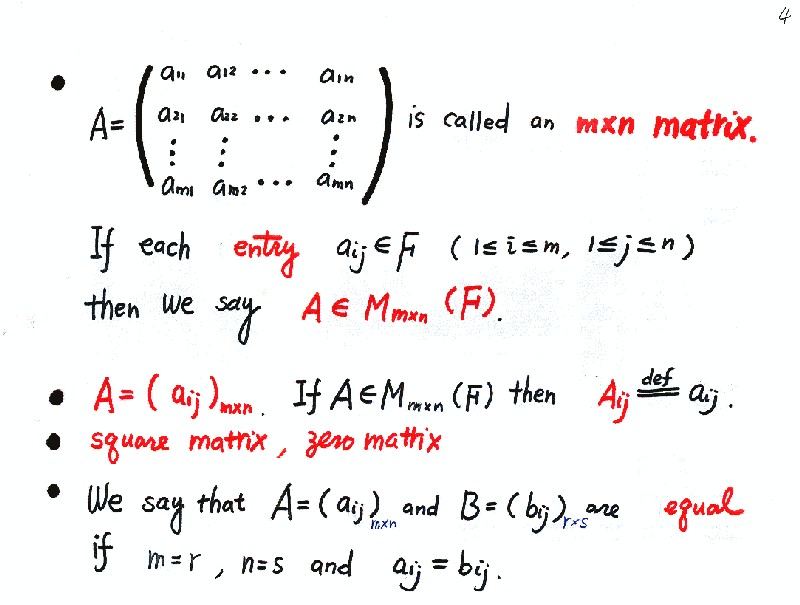 4
• A = ( a11 a12 ... a1n
a21 a22 ... a2n
⋮ ⋮ ⋮
am1 am2 ... amn ) is called an m×n matrix.
If each entry aij ∈ F ( 1≤i≤m, 1≤j≤n )
then we say A ∈ Mm×n (F).
• A = (aij)m×n. If A ∈ Mm×n (F) then Aij def= aij.
• square matrix, zero mattix
• We say that A = (aij)m×n and B = (bij)r×s are equal
if m=r, n=s and aij = bij.